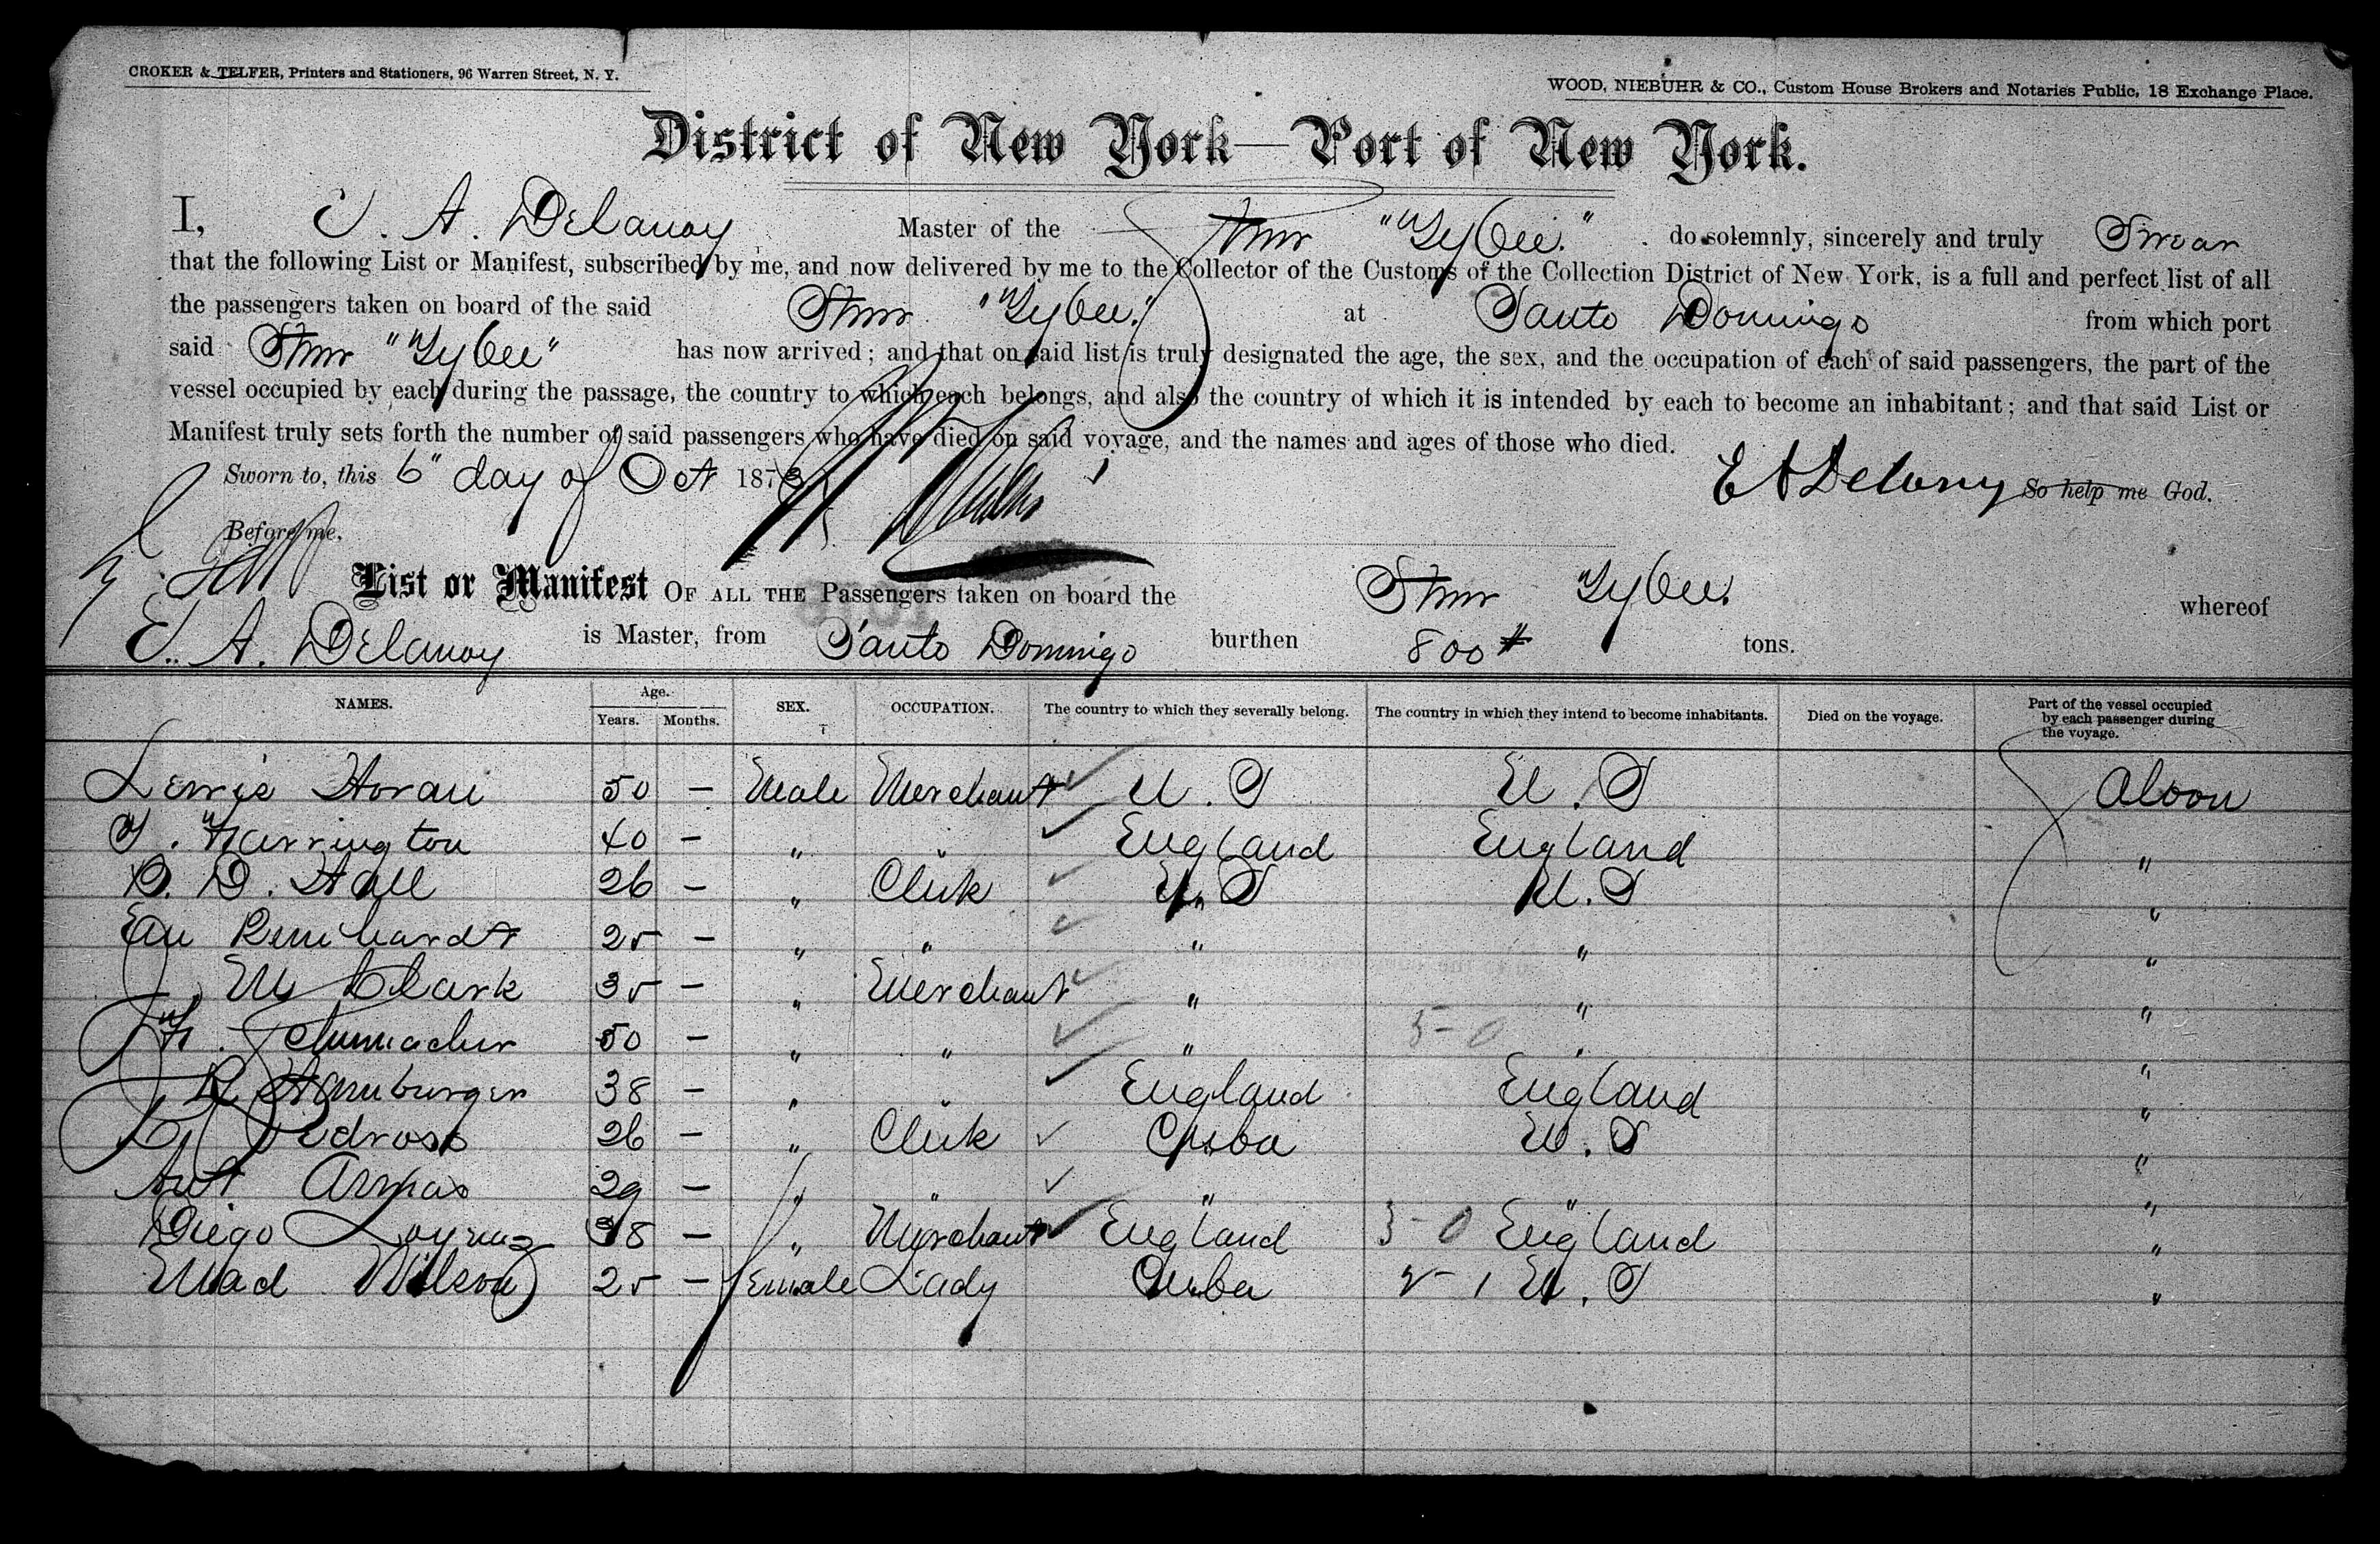 CROKER & TELFER, Printers and Stationers, 96 Warren Street, N. Y.
WOOD, NIEBUHR & CO., Custom House Brokers and Notaries Public, 18 Exchange Place.
District of New York—Port of New York.
I, E. A. Delanoy Master of the Stmr "Tybee." do solemnly, sincerely and truly Swear
that the following List or Manifest, subscribed by me, and now delivered by me to the Collector of the Customs of the Collection District of New York, is a full and perfect list of all
the passengers taken on board of the said Stmr "Tybee." at Santo Domingo from which port
said Stmr "Tybee" has now arrived; and that on said list is truly designated the age, the sex, and the occupation of each of said passengers, the part of the
vessel occupied by each during the passage, the country to which each belongs, and also the country of which it is intended by each to become an inhabitant; and that said List or
Manifest truly sets forth the number of said passengers who have died on said voyage, and the names and ages of those who died.
Sworn to, this 6" day of Oct 1873 E A Delanoy So help me God.
Before me,
List or Manifest OF ALL THE Passengers taken on board the Stmr Tybee. whereof
E. A. Delanoy is Master, from Santo Domingo burthen 800 tons.
NAMES. Age. Years. Months. SEX. OCCUPATION. The country to which they severally belong. The country in which they intend to become inhabitants. Died on the voyage. Part of the vessel occupied by each passenger during the voyage.
Horan 50 — Male Merchant U. S U. S
T. Harrington 40 — " " England England "
D. Hall 26 — " Clerk U. S U. S "
Reinhardt 25 — " " " " "
M Clark 35 — " Merchant " " "
H. Schumacher 50 — " " " 5-0 " "
R Hamburger 38 — " " England England "
Pedroso 26 — " Clerk Cuba U. S "
Ant. Armas 29 — " " " " "
Diego 38 — " Merchant England 3-0 England "
Mad Wilson 25 — Female Lady Cuba 2-1 U. S "